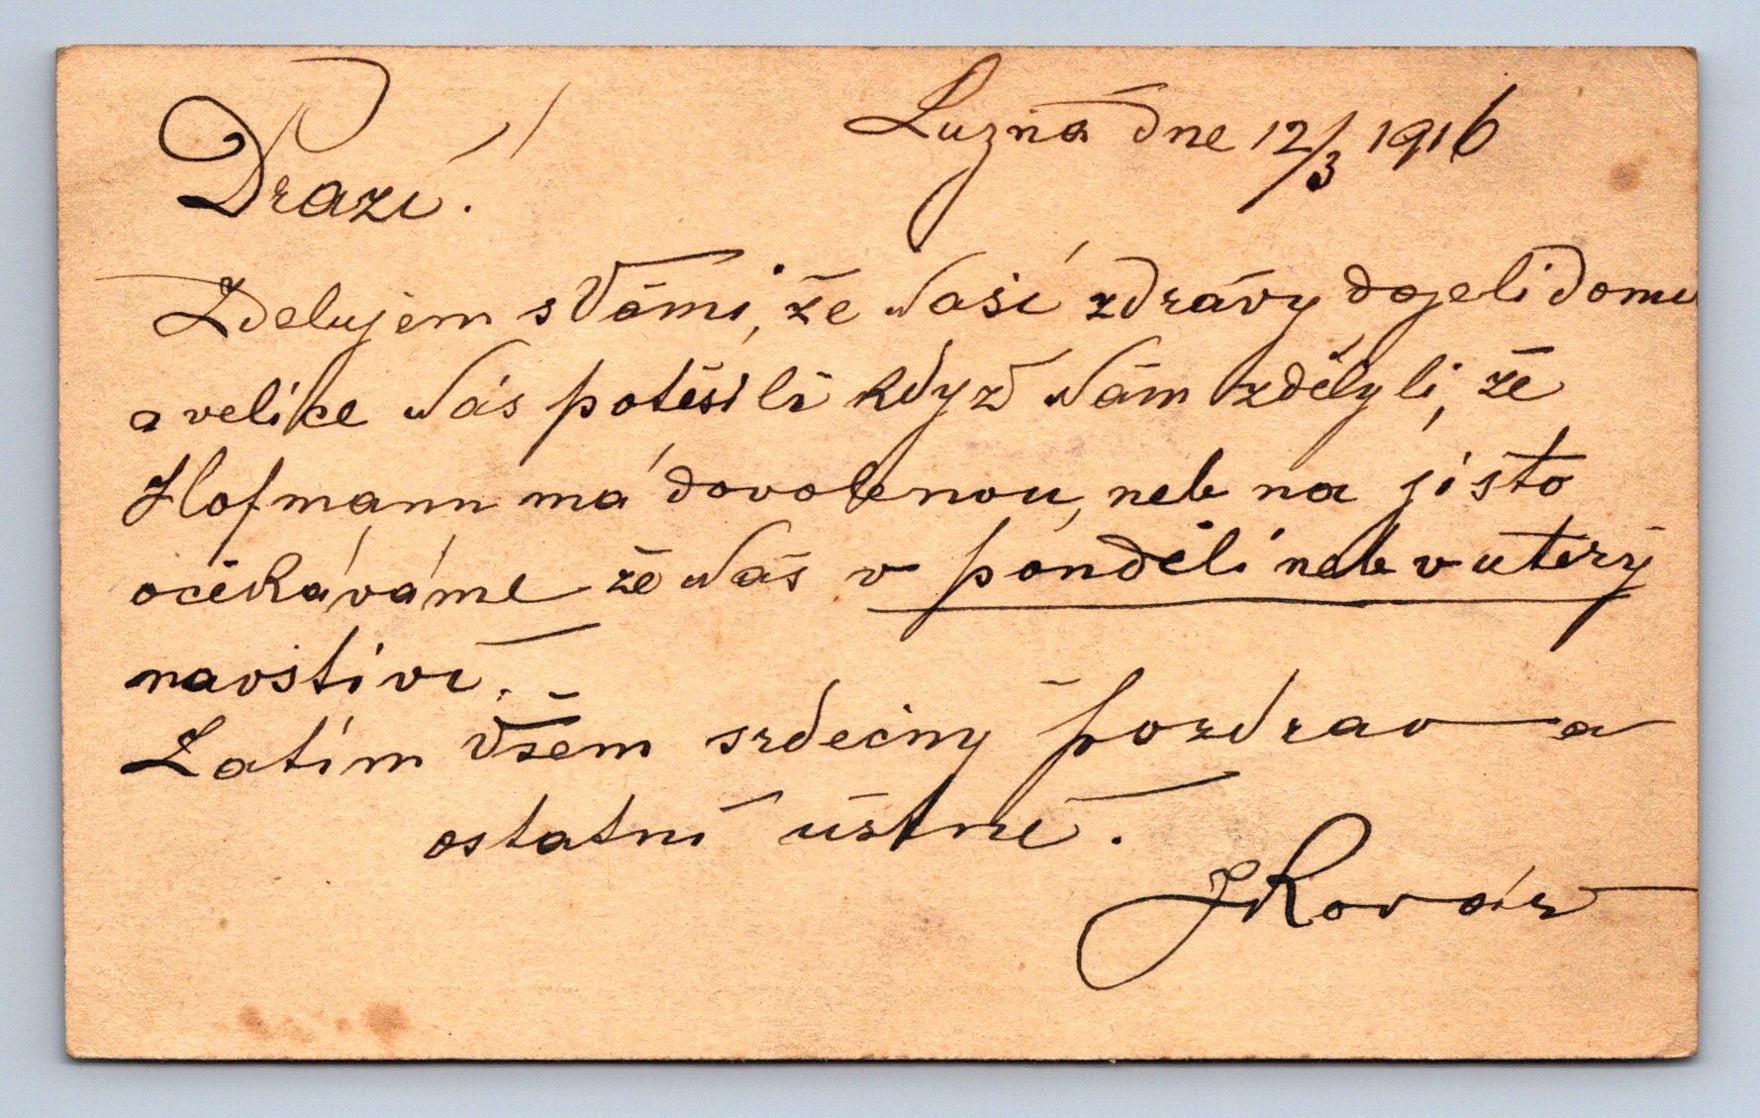 Lužná dne 12/3 1916
Drazí!
Zdelujem s Vámi, že Naší zdrávy dojeli domu
a velice Nás potěšili když Nám zdělyli, že
Hofmann má dovolenou, neb na jisto
očekáváme že Náš v pondělí neb v uterý
navštiví.
Zatím Všem srdečný pozdrav a
ostatní ústně.
JKovář